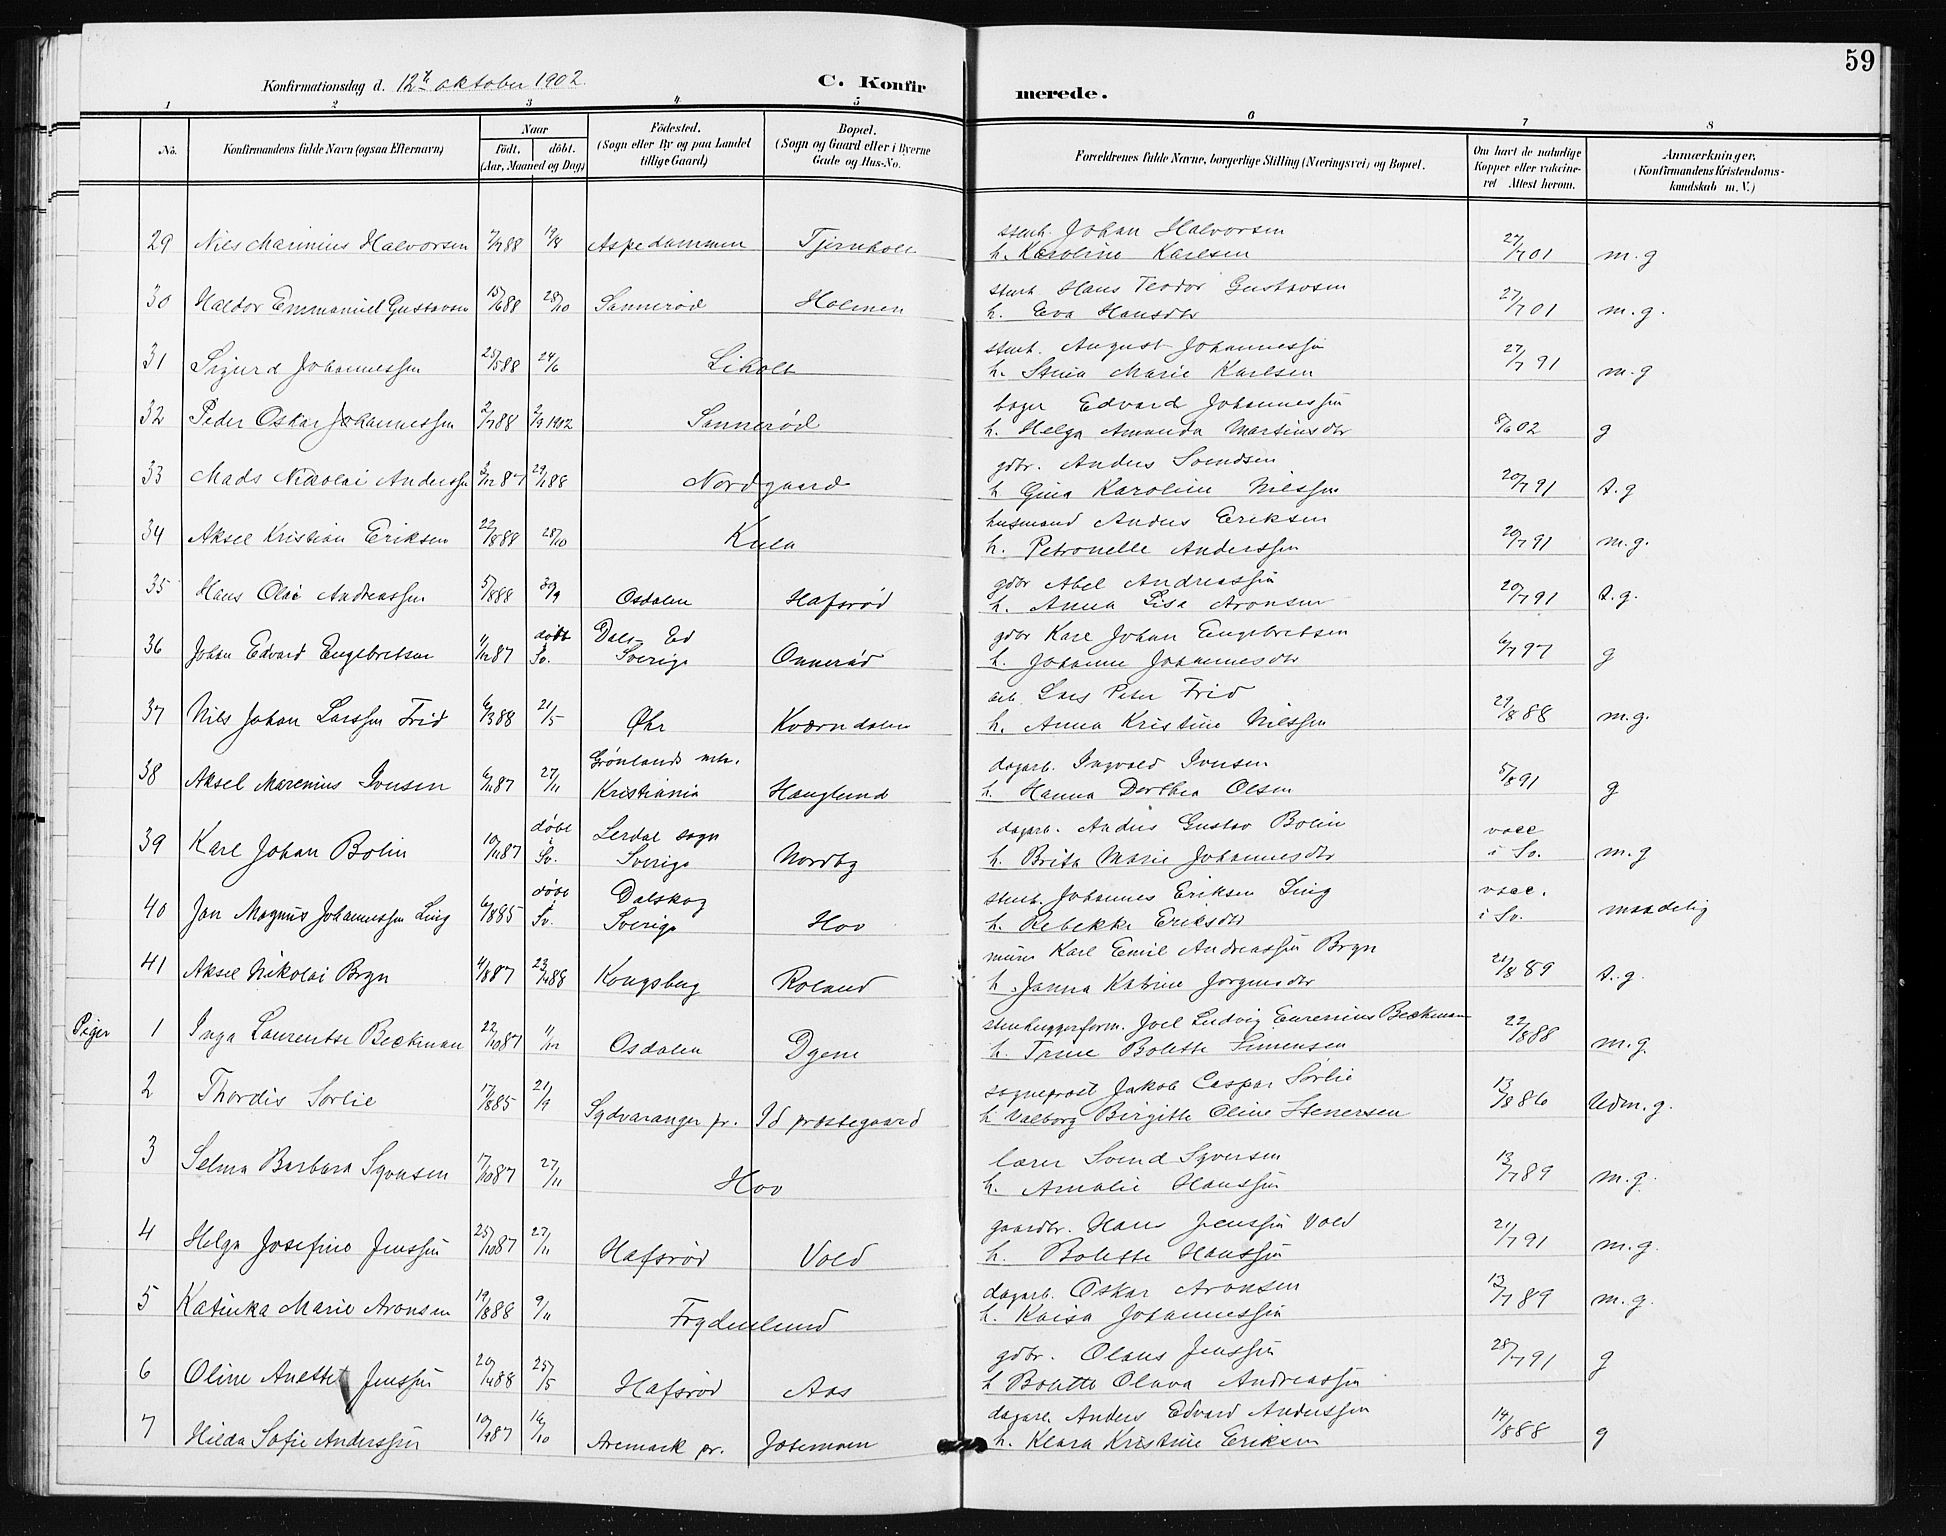 59
Konfirmationsdag d. 12te oktober 1902.
C. Konfirmerede.
1 2 3 4 5 6 7 8
No. Konfirmandens fulde Navn (ogsaa Efternavn) Naar Födt. döbt. (Aar, Maaned og Dag) Födested. (Sogn eller By og paa Landet tillige Gaard) Bopæl. (Sogn og Gaard eller i Byerne Gade og Hus-No. Forældrenes fulde Navne, borgerlige Stilling (Næringsvei) og Bopæl. Om havt de naturlige Kopper eller vakcineret Attest herom. Anmærkninger. (Konfirmandens Kristendomskundskab m. V.)
29 Nils Marinius Halvorsen 7/7 88 19/8 Aspedammen Tjernholt stenh. Johan Halvorsen
h. Karoline Karlsen 27/7 01 m. g
30 Haldor Emmanuel Gustavsen 15/6 88 28/10 Sannerød Holmen stenh. Hans Teodor Gustavsen
h. Eva Hansdtr 27/7 01 m. g.
31 Sigurd Johannessen 25/5 88 24/6 Liholt stenh. August Johannessen
h. Stina Marie Karlsen 27/7 91 m. g
32 Peder Oskar Johannessen 2/7 88 Sannerød bager Edvard Johannessen
h. Helga Amanda Martinsdtr 8/6 02 g
33 Mads Nikolai Anderssen 2/12 87 29/1 88 Nordgaard gdbr. Anders Svendsen
h Gina Karoline Nilssen 20/7 91 t. g
34 Aksel Kristian Eriksen 22/8 88 28/10 Kula husmand Anders Eriksen
h. Petronelle Anderssen 20/7 91 m. g.
35 Hans Olai Andreassen 5/8 88 30/9 Osdalen Hafsrød gdbr Abel Andreassen
h. Anna Lisa Aronsen 20/7 91 t. g.
36 Johan Edvard Engebretsen 1/12 87 døbt i Sv. Dals Ed
Sverige Onnerød gdbr Karl Johan Engebretsen
h. Johanne Johannesdtr 6/7 97 g
37 Nils Johan Larssen Frid 6/3 88 21/5 Øhr Kværndalen arb. Lars Peter Frid
h. Anna Kristine Nilssen 29/8 88 m. g.
38 Aksel Marenius Ivensen 6/9 87 27/11 Grønlands mh.
Kristiania Hauglund dagarb. Ingvald Ivensen
h. Hanna Dorthea Olsen 5/8 91 g
39 Karl Johan Bolin 10/11 87 døbt i Sv. Lerdal sogn
Sverige Nordby dagarb. Andres Gustav Bolin
h. Brita Marie Johannesdtr vacc i Sv. m. g
40 Jan Magnus Johannessen Ling 6/8 85 døbt i Sv. Dalskog
Sverige Hov stenh. Johannes Eriksen Ling
h. Rebekka Eriksdtr vacc. i Sv. maadelig
41 Aksel Nikolai Bryn 4/8 87 23/1 88 Kongsberg Roland murer Karl Emil Andreassen Bryn
h. Janna Katrine Jørgensdtr 21/8 89 t. g.
Piger 1 Inga Laurentse Beckman 22/10 87 11/12 Osdalen Dyene stenhuggerform. Joel Ludvig Eurenius Beckman
h. Trine Bolette Simensen 22/8 88 m. g
2 Thordis Sørlie 17/8 85 21/9 Sydvaranger pr. Id præstegaard sogneprest Jakob Caspar Sørlie
h Valborg Birgitte Oline Stenersen 13/8 86 Udm. g.
3 Selma Barbara Syversen 17/10 87 27/11 Hov lærer Svend Syversen
h. Amalie Hanssen 13/7 89 m. g.
4 Helga Josefine Jenssen 25/10 87 27/11 Hafsrød Vold gaardbr. Hans Jenssen Vold
h. Bolette Hanssen 21/7 91 m. g.
5 Katinka Marie Aronsen 19/8 88 9/11 Frydenlund dagarb. Oskar Aronsen
h. Kaisa Johannessen 13/7 89 m. g.
6 Oline Anette Jenssen 20/4 88 25/5 Hafsrød Aas gdbr. Olaus Jenssen
h Bolette Olava Andreassen 28/7 91 g
7 Hilda Sofie Anderssen 10/9 87 16/10 Aremark pr. Josemoen dagarb. Anders Edvard Anderssen
h. Klara Kristine Eriksen 14/8 88 g